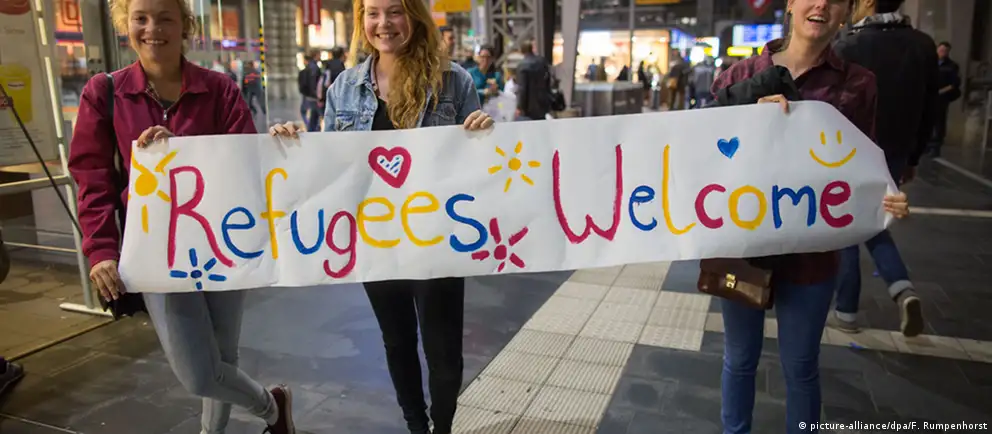 Refugees Welcome
© picture-alliance/dpa/F. Rumpenhorst